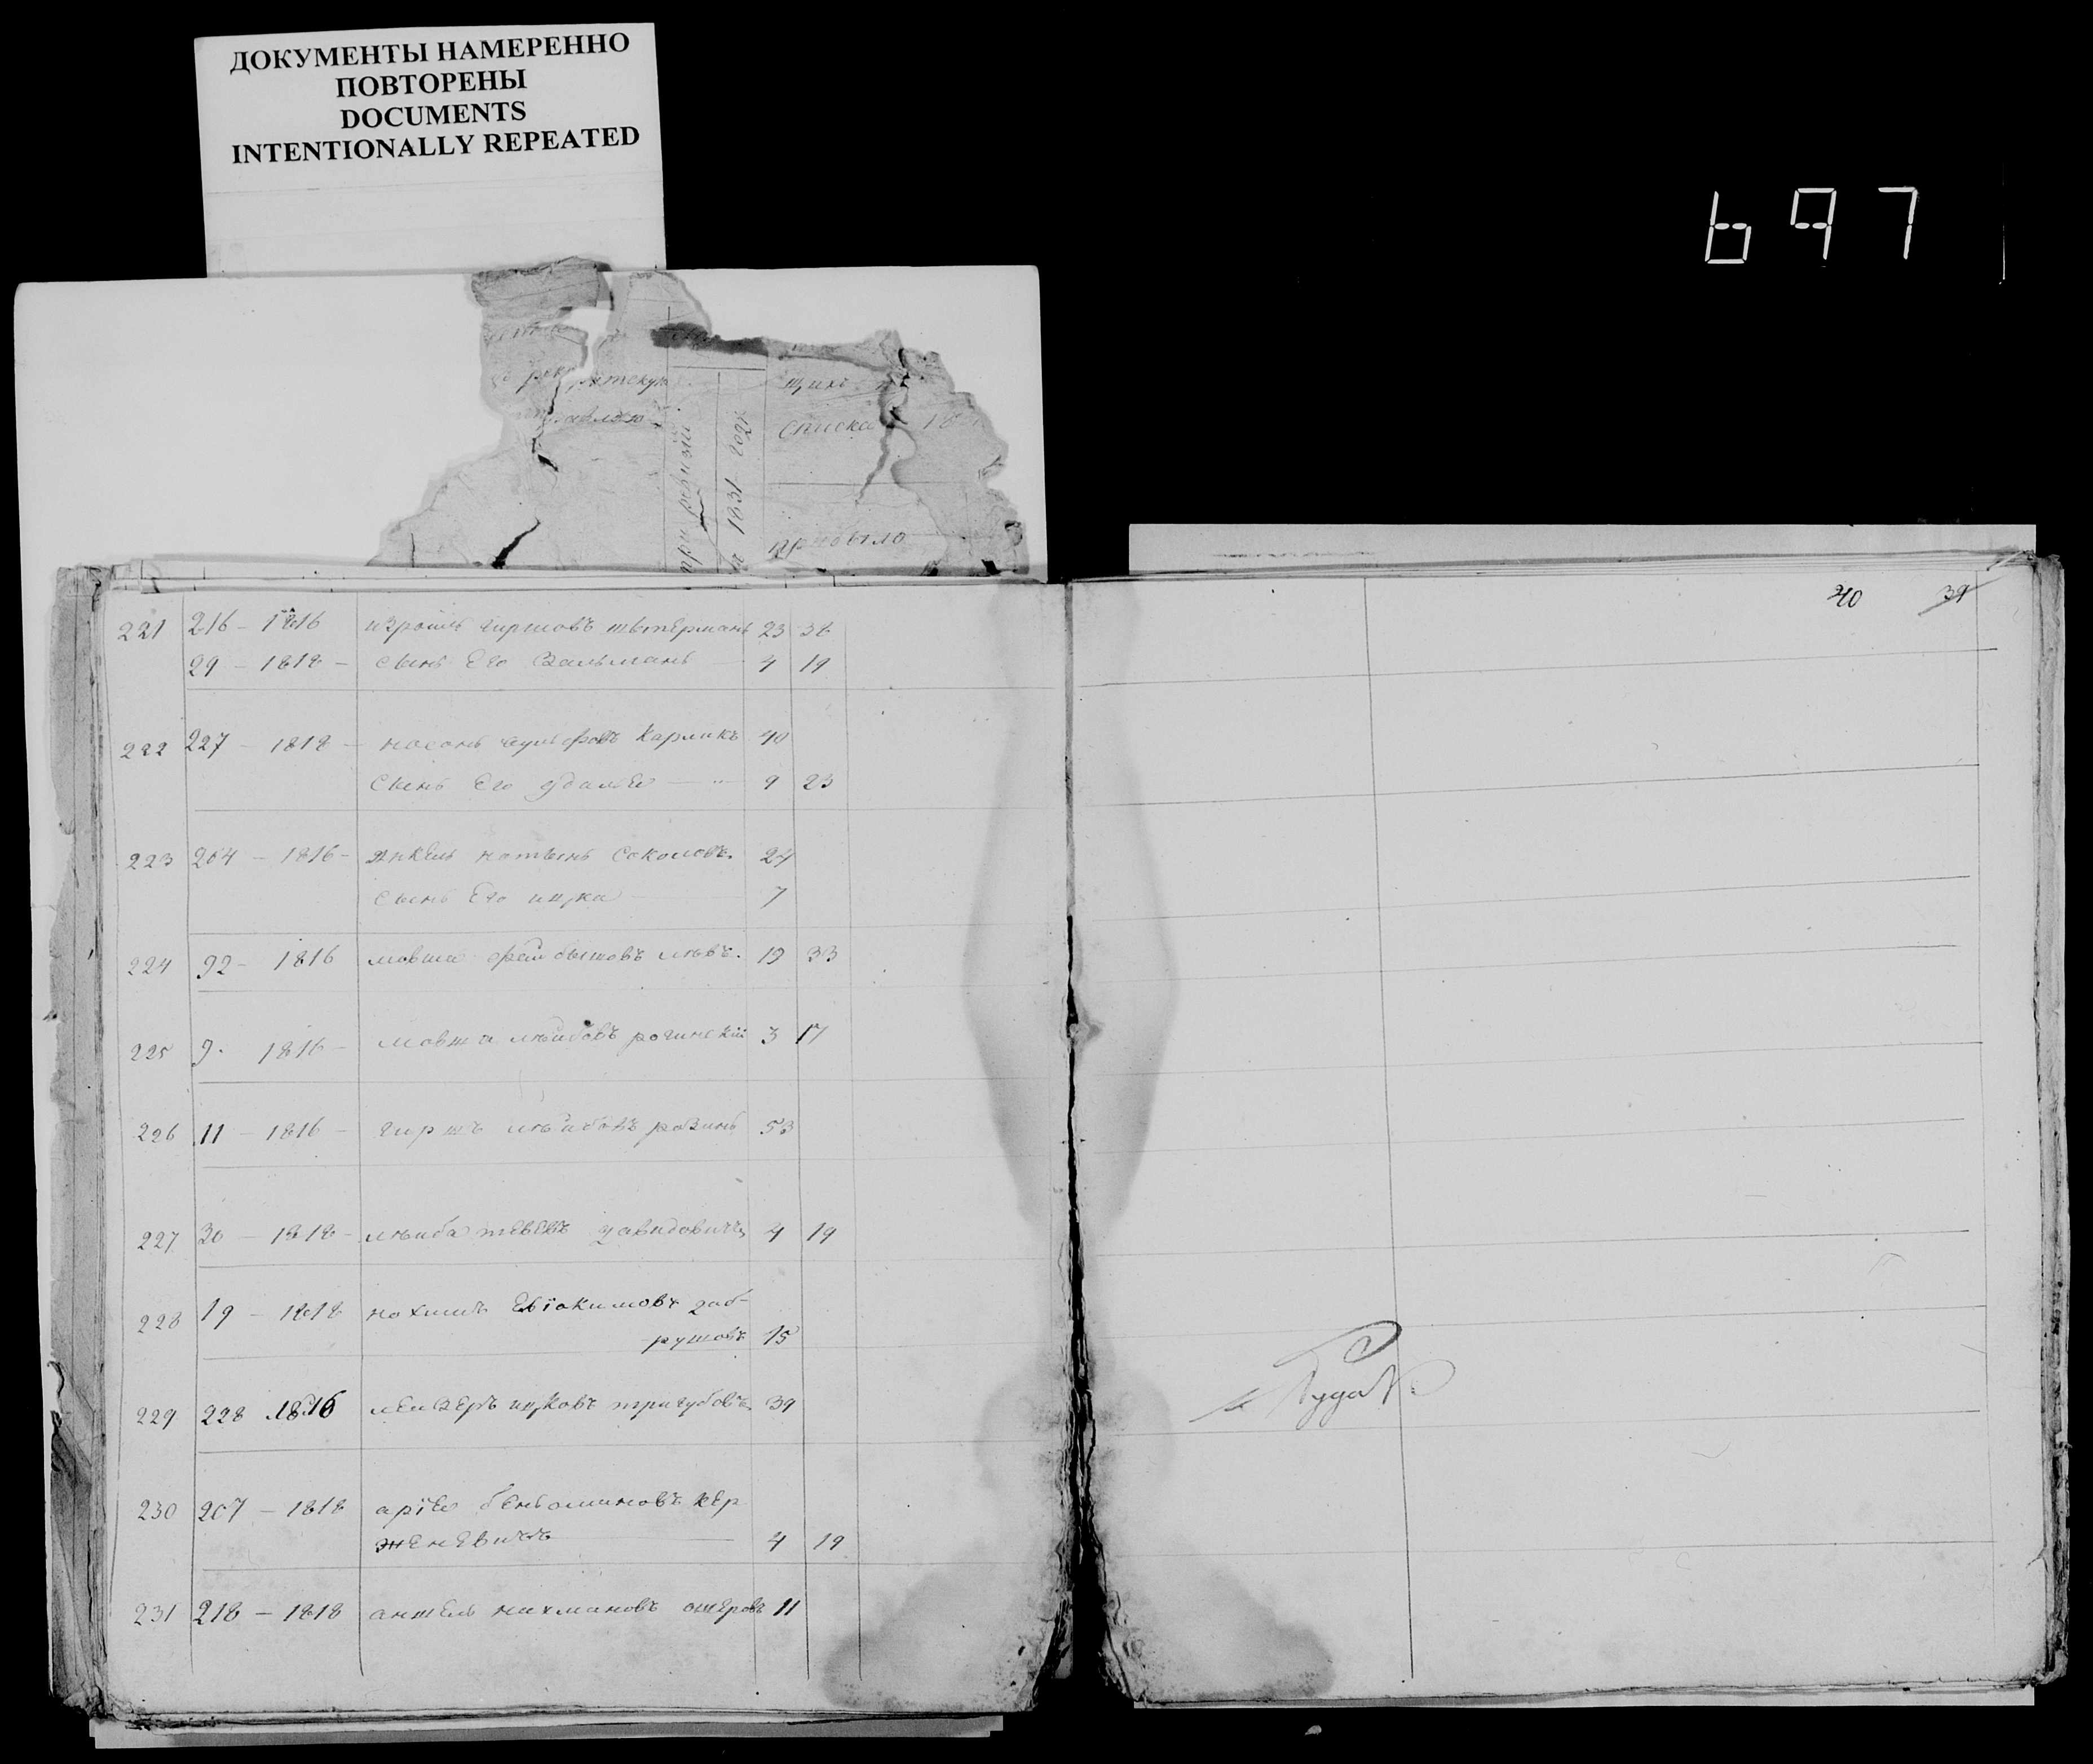 ДОКУМЕНТЫ НАМЕРЕННО
ПОВТОРЕНЫ
DOCUMENTS
INTENTIONALLY REPEATED
697
списка 18
при ревизіи
1831 году
прибыло
40 39
221 216 – 1816 Израиль Гиршовъ 23 38
29 – 1818 – сынъ Его Залманъ 4 19
222 227 – 1818 – Карликъ 40
сынъ Его 9 23
223 204 – 1816 – Янкель Соколовъ 27
сынъ Его ицка 7
224 92 – 1816 мовша левъ 19 33
225 9 . 1816 – мовша лейбовъ рогинскій 3 17
226 11 – 1816 – гиршъ лейбовъ розинъ 53
227 30 – 1818 – лейба тевевъ давидовичъ 4 19
228 19 – 1818 нохимъ Евіокимовъ заб-
рушовъ 15
229 228 1816 лейзеръ ицковъ тригубовъ 39
230 207 – 1818 аріе беньоминовъ кер
женевичъ 4 19
231 218 – 1818 аншель нахмановъ ошеровъ 11